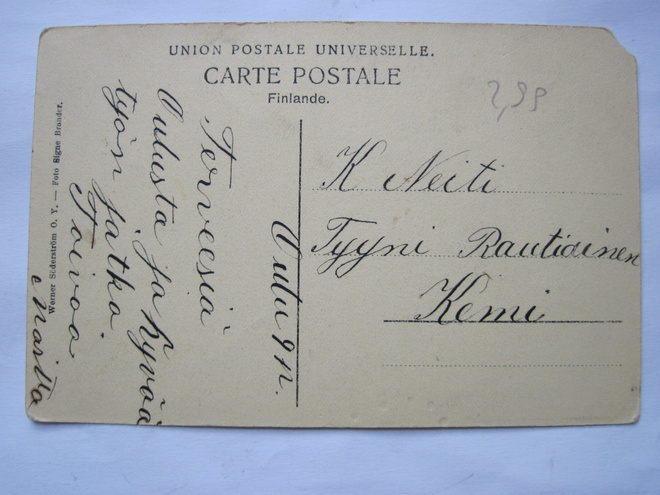 UNION POSTALE UNIVERSELLE.
CARTE POSTALE
Finlande.
2,98
K Neiti
Tyyni Rautiainen
Kemi
Oulu 9 p.
Terveesiä
Oulusta ja hyvää
työn jatko
Toivoo
Martta
Werner Söderström O. Y. — Foto Signe Brander.